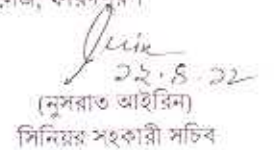 ২২.৪.২২
(নুসরাত আইরিন)
সিনিয়র সহকারী সচিব